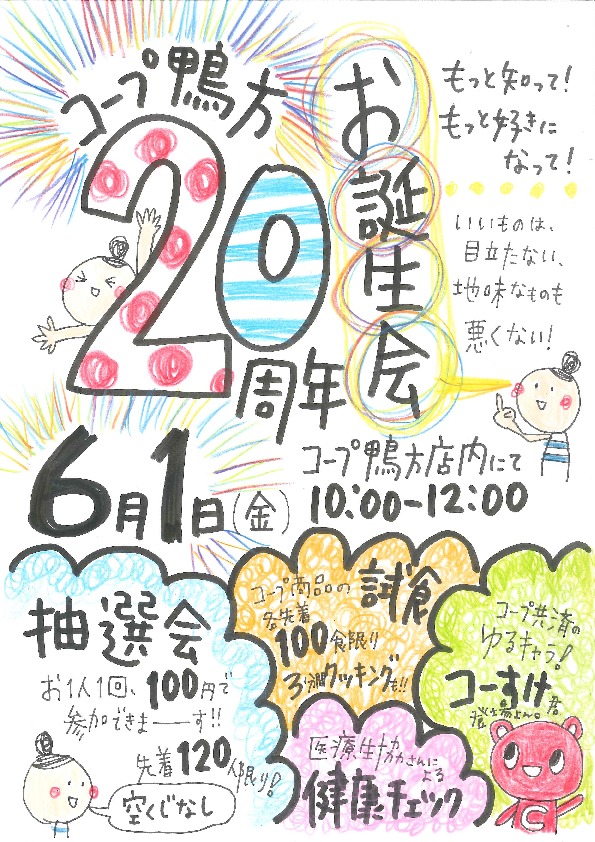 コープ鴨方
20周年
お誕生会
もっと知って!
もっと好きに
なって!
いいものは、
目立たない、
地味なものも
悪くない!
6月1日(金)
コープ鴨方店内にて
10:00-12:00
抽選会
お1人1回、100円で
参加できまーーす!!
先着120人限り!
空くじなし
コープ商品の
試食
各先着
100食限り
3分間クッキングも!!
医療生協さんに
よる
健康チェック
コープ共済の
ゆるキャラ!
コーすけ君
登場よん。
C